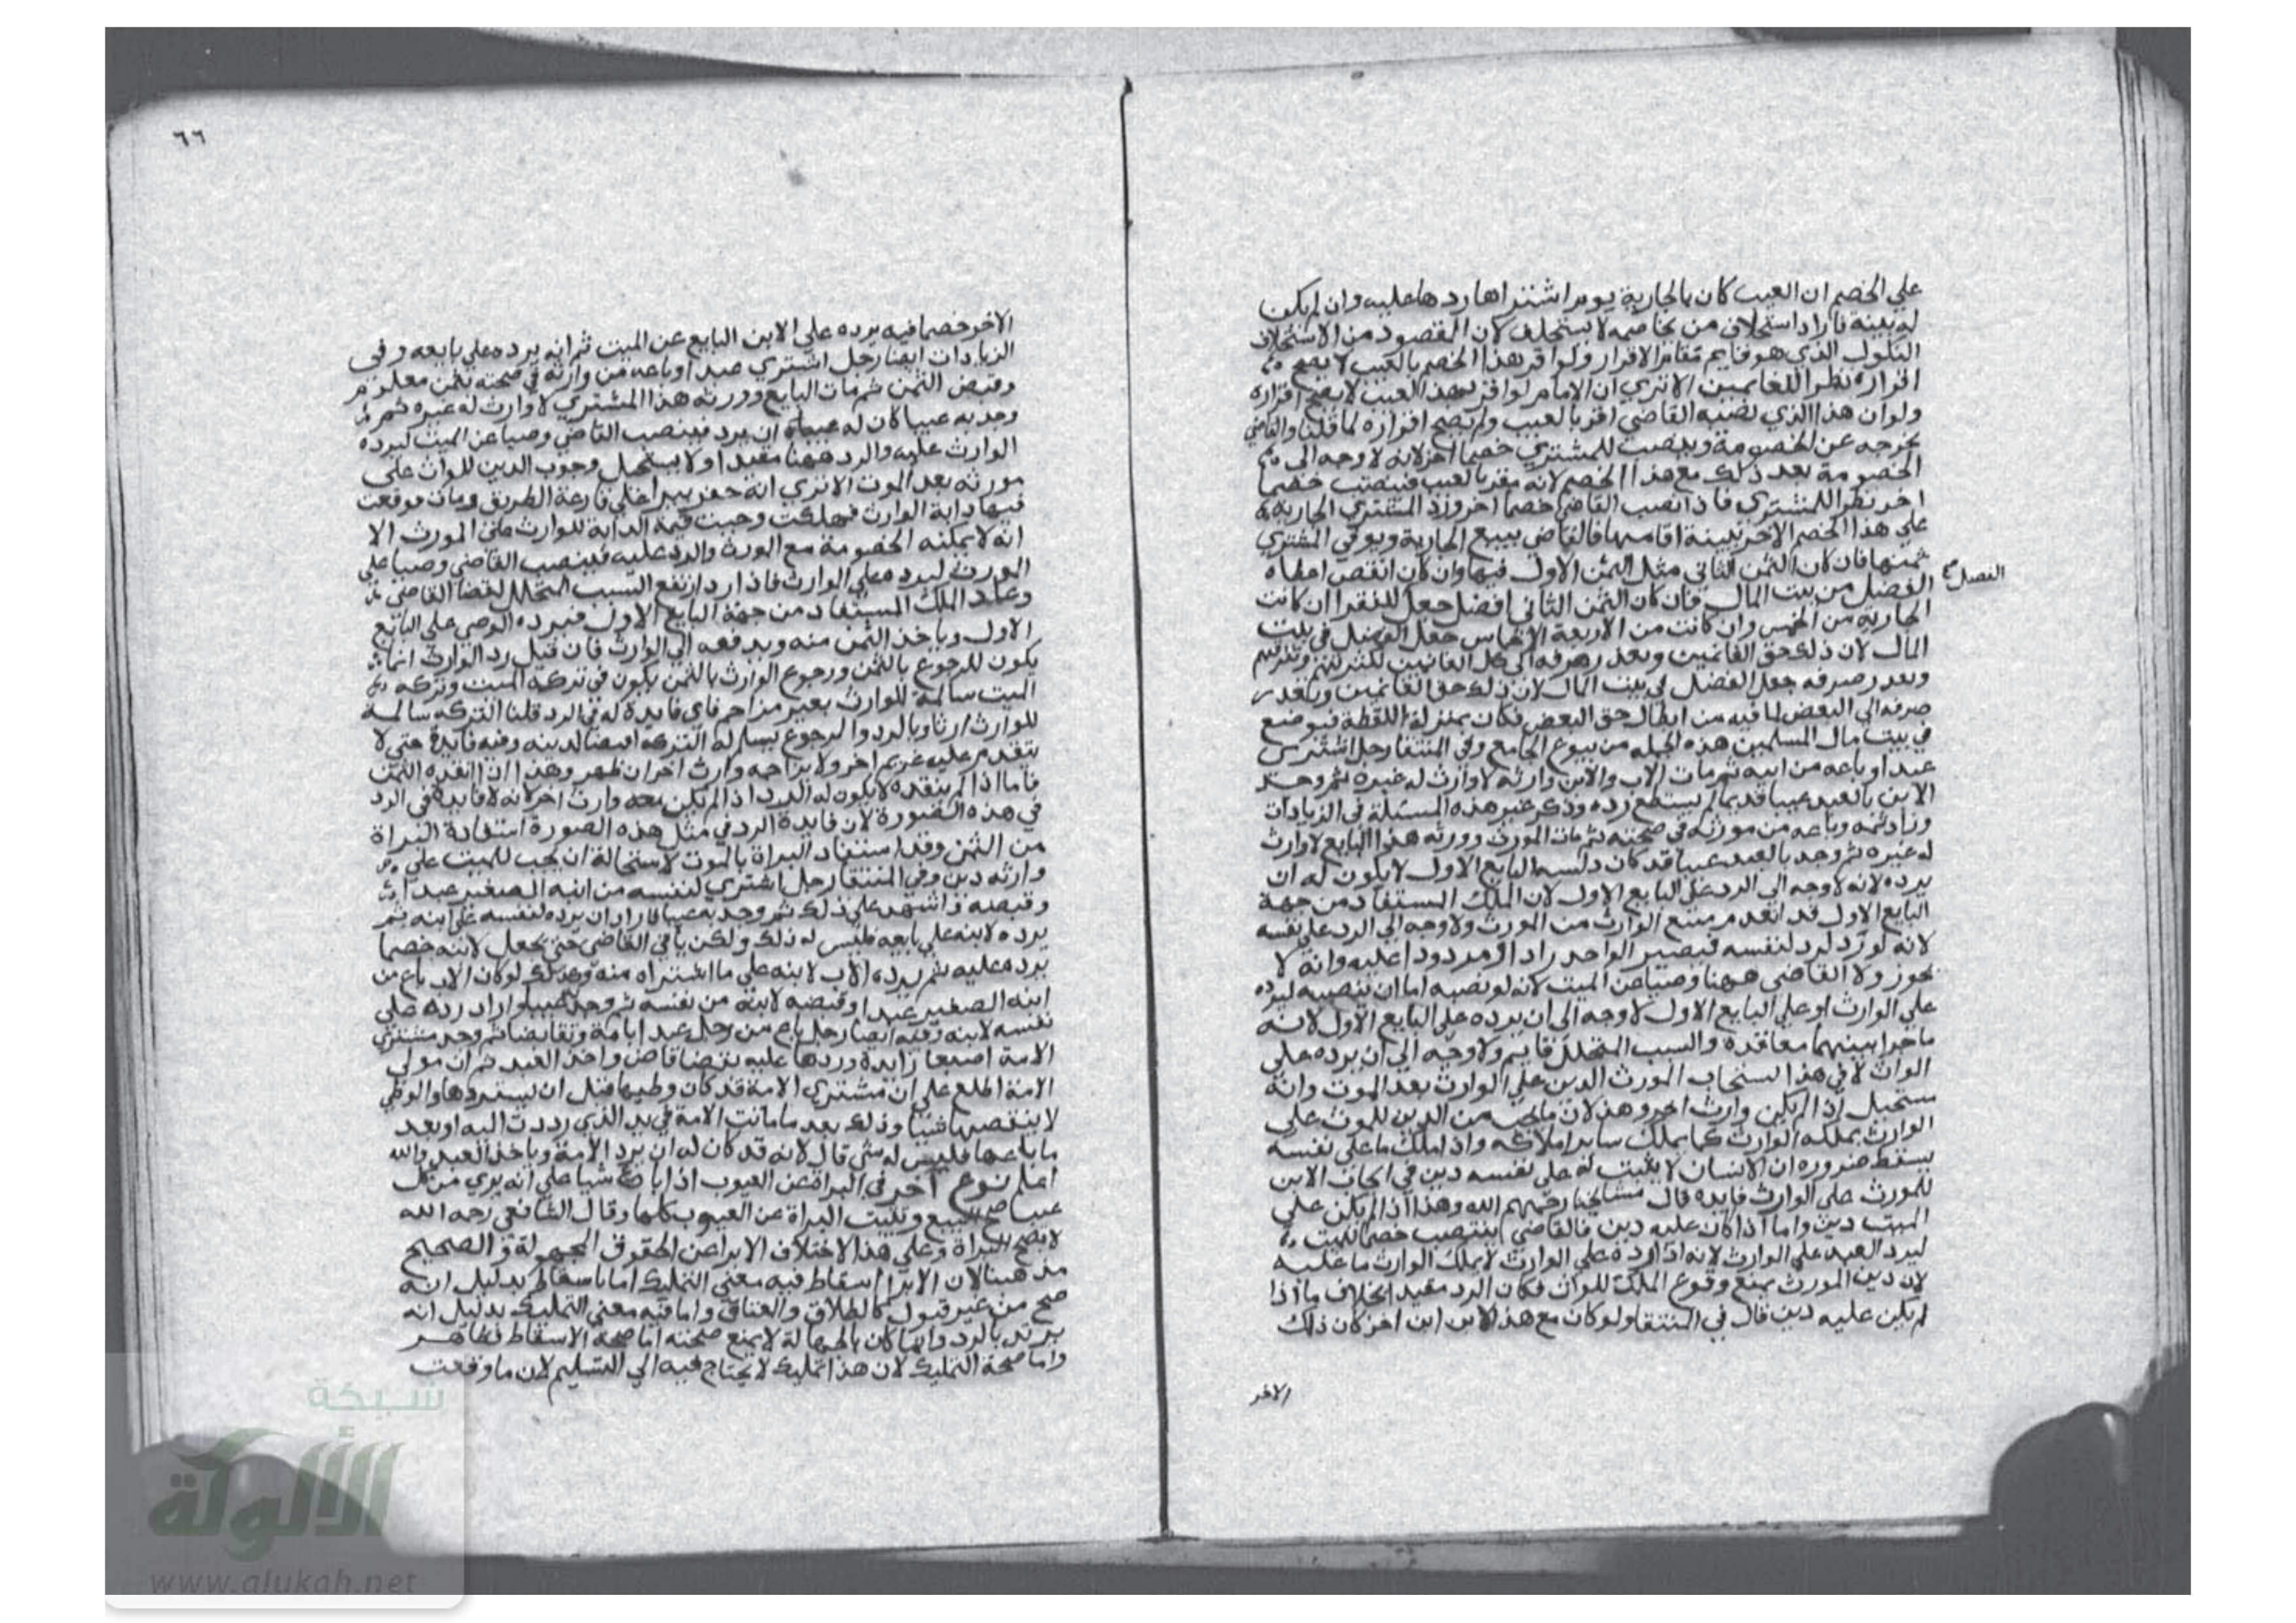 علي الخصم ان العيب كان بالجارية يوم اشتراها ردها عليه وان لم يكن
له بينة فاراد استحلاف من يخاصمه لا يستحلف لان المقصود من الاستحلاف
النكول الذي هو قايم مقام الاقرار ولو اقر هذا الخصم بالعيب لا يصح
اقراره نظرا للغانمين الا تري ان الامام لو اقر بهذا العيب لا يصح اقراره
ولو ان هذا الذي نصبه القاضي اقر بالعيب ولم يصح اقراره لما قلنا والقاضي
يخرجه عن الخصومة وينصب للمشتري خصما اخر لانه لا وجه الى
الخصومة بعد ذلك مع هذا الخصم لانه مقر بالعيب فينصب خصما
اخر نظرا للمشتري فاذا نصب القاضي خصما اخر ورد المشتري الجارية
على هذا الخصم الاخر ببينة اقامها فالقاضي يبيع الجارية ويوفي المشتري
ثمنها فان كان الثمن الثاني مثل الثمن الاول فبها وان كان انقص اعطاه
الفضل من بيت المال فان كان الثمن الثاني افضل جعل للفقرا ان كانت
الفصل
الجارية من الخمس وان كانت من الاربعة الاخماس جعل الفضل في بيت
المال لان ذلك حق الغانمين وتعذر صرفه الى كل الغانمين لكثرتهم
وتعذر صرفه جعل الفضل في بيت المال لان ذلك حق الغانمين وتعذر
صرفه الي البعض لما فيه من ابطال حق البعض فكان بمنزلة اللقطة فيوضع
في بيت مال المسلمين هذه الجملة من بيوع الجامع وفي المنتقا رجل اشترى
عبدا وباعه من ابيه ثم مات الاب والابن وارثه لا وارث له غيره ثم وجد
الابن بالعبد عيبا قديما لم يستطع رده وذكر عين هذه المسئلة في الزيادات
وزاد ثمة وباعه من مورثه في صحته ثم مات المورث وورثه هذا البايع لا وارث
له غيره ثم وجد بالعبد عيبا قد كان دلسه البايع الاول لا يكون له ان
يرده لانه لا وجه الي الرد على البايع الاول لان الملك المستفاد من جهة
البايع الاول قد انعدم ببيع الوارث من المورث ولا وجه الي الرد على نفسه
لانه لو رد لرد لنفسه فيصير الواحد رادا ومردودا عليه وانه لا
يجوز ولا القاضي ههنا وصيا عن الميت لانه لو نصبه اما ان ينصبه ليرده
علي الوارث او علي البايع الاول لا وجه الى ان يرده على البايع الاول لانه
ما جرا بينهما معاقدة والسبب المتخلل قايم ولا وجه الي ان يرده على
الوارث لان في هذا استحباب المورث الدين علي الوارث بعد الموت وانه
مستحيل اذا لم يكن وارث اخر وهذا لان ما يجب من الدين للمورث على
الوارث يملكه الوارث كما يملك ساير املاكه واذا ملك ما على نفسه
يسقط ضرورة ان الانسان لا يثبت له على نفسه دين في الحاق الابن
للمورث على الوارث فايدة قال مشايخنا رحمهم الله وهذا اذا لم يكن على
الميت دين واما اذا كان عليه دين فالقاضي ينتصب خصما للميت
ليرد العبد علي الوارث لانه اذا رده على الوارث لا يملك الوارث ما عليه
لان دين المورث يمنع وقوع الملك للوارث فكان الرد مفيدا بخلاف ما اذا
لم يكن عليه دين قال في المنتقا ولو كان مع هذا الابن ابن اخر كان ذلك
الاخر
٦٦
الاخر خصما فيه يرده علي الابن البايع عن الميت ثم انه يرده علي بايعه وفى
الزيادات ايضا رجل اشتري عبدا وباعه من وارثه في صحته بثمن معلوم
وقبض الثمن ثم مات البايع وورثه هذا المشتري لا وارث له غيره ثم
وجد به عيبا كان له ان يرد فينصب القاضي وصيا عن الميت ليرده
الوارث عليه والرد ههنا مفيد اولا يستحيل وجوب الدين للوارث على
مورثه بعد الموت الا تري انه حفر بيرا علي قارعة الطريق ومات فوقعت
فيها دابة الوارث فهلكت وجبت قيمة الدابة للوارث على المورث الا
انه لا يمكنه الخصومة مع المورث والرد عليه فينصب القاضي وصيا على
المورث ليرده علي الوارث فاذا رد ارتفع السبب المتخلل بقضا القاضي
وعاد الملك المستفاد من جهة البايع الاول فيرده الوصي علي البايع
الاول وياخذ الثمن منه ويدفعه الي الوارث فان قيل رد الوارث انما
يكون للرجوع بالثمن ورجوع الوارث بالثمن يكون في تركة الميت وتركة
الميت سالمة للوارث بغير مزاحم فاي فايدة له في الرد قلنا التركة سالمة
للوارث ارثا وبالرد والرجوع يسلم له التركة ايضا لدينه وفيه فايدة حتى لا
يتقدم عليه غريم اخر ولا يزاحمه وارث اخر ان ظهر وهذا ان انقده الثمن
فاما اذا لم ينقده لا يكون له الرد اذا لم يكن معه وارث اخر لانه لا فايدة في الرد
في هذه الصورة لان فايدة الرد في مثل هذه الصورة استفادة البراة
من الثمن وقد استفاد البراة بالموت لاستحالة ان يجب للميت على
وارثه دين وفي المنتقا رجل اشتري لنفسه من ابنه الصغير عبدا
وقبضه واشهد علي ذلك ثم وجد به عيبا فاراد ان يرده لنفسه علي ابنه ثم
يرده لابنه علي بايعه فليس له ذلك ولكن ياتي القاضي حتى يجعل لابنه خصما
يرده عليه ثم يرده الاب لابنه علي ما اشتراه منه وكذلك لو كان الاب باع من
ابنه الصغير عبدا وقبضه لابنه من نفسه ثم وجد عيبا واراد رده على
نفسه لابنه وفيه ايضا رجل باع من رجل عبدا بامة وتقابضا ثم وجد مشتري
الامة اصبعا زايدة وردها عليه بقضا قاض واخذ العبد ثم ان مولى
الامة اطلع على ان مشتري الامة قد كان وطيها قبل ان يستردها والوطي
لا ينقصها شيا وذلك بعد ما ماتت الامة في يد الذي رددت اليه او بعد
ما باعها فليس له شي قال لانه قد كان له ان يرد الامة وياخذ العبد والله
اعلم نوع آخر في البراة عن العيوب اذا باع شيا على انه بري من كل
عيب صح البيع ويثبت البراة عن العيوب كلها وقال الشافعي رحمه الله
لا يصح البراة وعلي هذا الاختلاف الابرا عن الحقوق المجهولة والصحيح
مذهبنا لان الابرا اسقاط فيه معني التمليك اما باسقاط بدليل انه
صح من غير قبول كالطلاق والعتاق واما فيه معني التمليك بدليل انه
يرتد بالرد وايما كان بالجهالة لا يمنع صحته اما صحة الاسقاط فظاهر
واما صحة التمليك لان هذا تمليك لا يحتاج فيه الي التسليم لان ما وقعت
شبكة
الألوكة
www.alukah.net